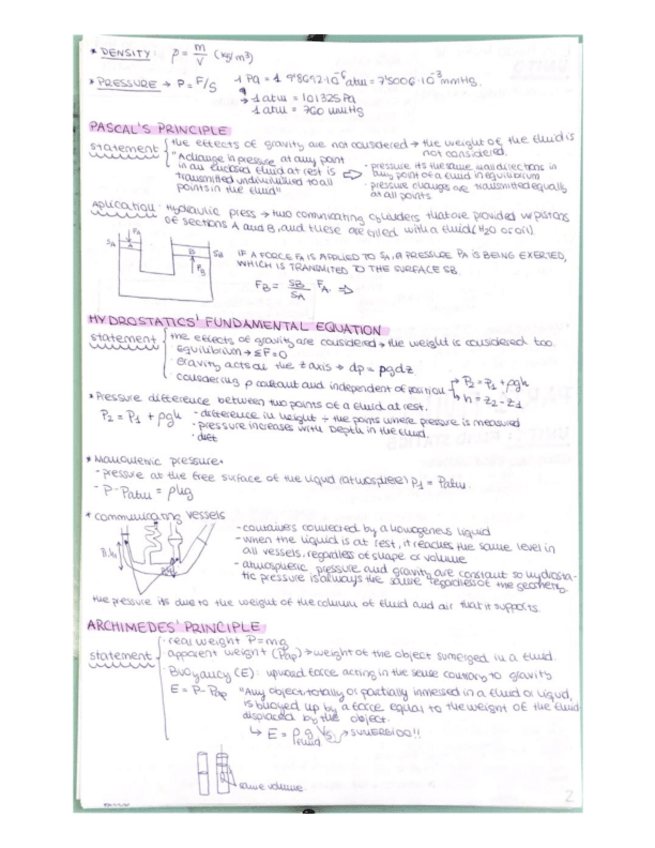 * DENSITY: ρ = m/V (kg/m³)
* PRESSURE → P = F/S
1 Pa = 9'8692·10⁻⁶ atm = 7'5006·10⁻³ mmHg.
→ 1 atm = 101325 Pa
1 atm = 760 mmHg
PASCAL'S PRINCIPLE
statement
the effects of gravity are not considered → the weight of the fluid is
not considered.
"A change in pressure at any point
in an enclosed fluid at rest is
transmitted undiminished to all
points in the fluid"
· pressure its the same in all directions in
any point of a fluid in equilibrium
· pressure changes are transmitted equally
at all points
Aplication: Hydraulic press → two comunicating cylinders that are provided w/pistons
of sections A and B, and these are filled with a fluid (H2O or oil).
SA FA A B SB FB
IF A FORCE FA IS APPLIED TO SA, A PRESSURE PA IS BEING EXERTED,
WHICH IS TRANSMITED TO THE SURFACE SB.
FB = SB/SA FA ⇒
HYDROSTATICS' FUNDAMENTAL EQUATION
statement
· the effects of gravity are considered → the weight is considered too.
· equilibrium → ΣF = 0
· Gravity acts as the z axis → dp = ρgdz
· considering ρ constant and independent of position
P2 = P1 + ρgh
h = z2 - z1
* Pressure difference between two points of a fluid at rest.
P2 = P1 + ρgh
- difference in height ÷ the points where pressure is measured
· pressure increases with depth in the fluid.
* Manometric pressure.
- pressure at the free surface of the liquid (atmosphere) P1 = Patm.
- P - Patm = ρhg
* communicating vessels
- containers connected by a homogeneus liquid
- when the liquid is at rest, it reaches the same level in
all vessels, regardless of shape or volume
- atmospheric pressure and gravity are constant so hydrosta-
tic pressure is always the same regardless of the geometry.
the pressure its due to the weight of the column of fluid and air that it supports.
ARCHIMEDES' PRINCIPLE
statement
· real weight P = mg
· apparent weight (Pap) → weight of the object sumerged in a fluid.
· Buoyancy (E): upward force acting in the sense contrary to gravity
E = P - Pap
"Any object, totally or partially inmersed in a fluid or liquid,
is buoyed up by a force equal to the weight of the fluid
displaced by the object.
↳ E = ρfluid g Vs → SUMERGIDO!!
same volume
2